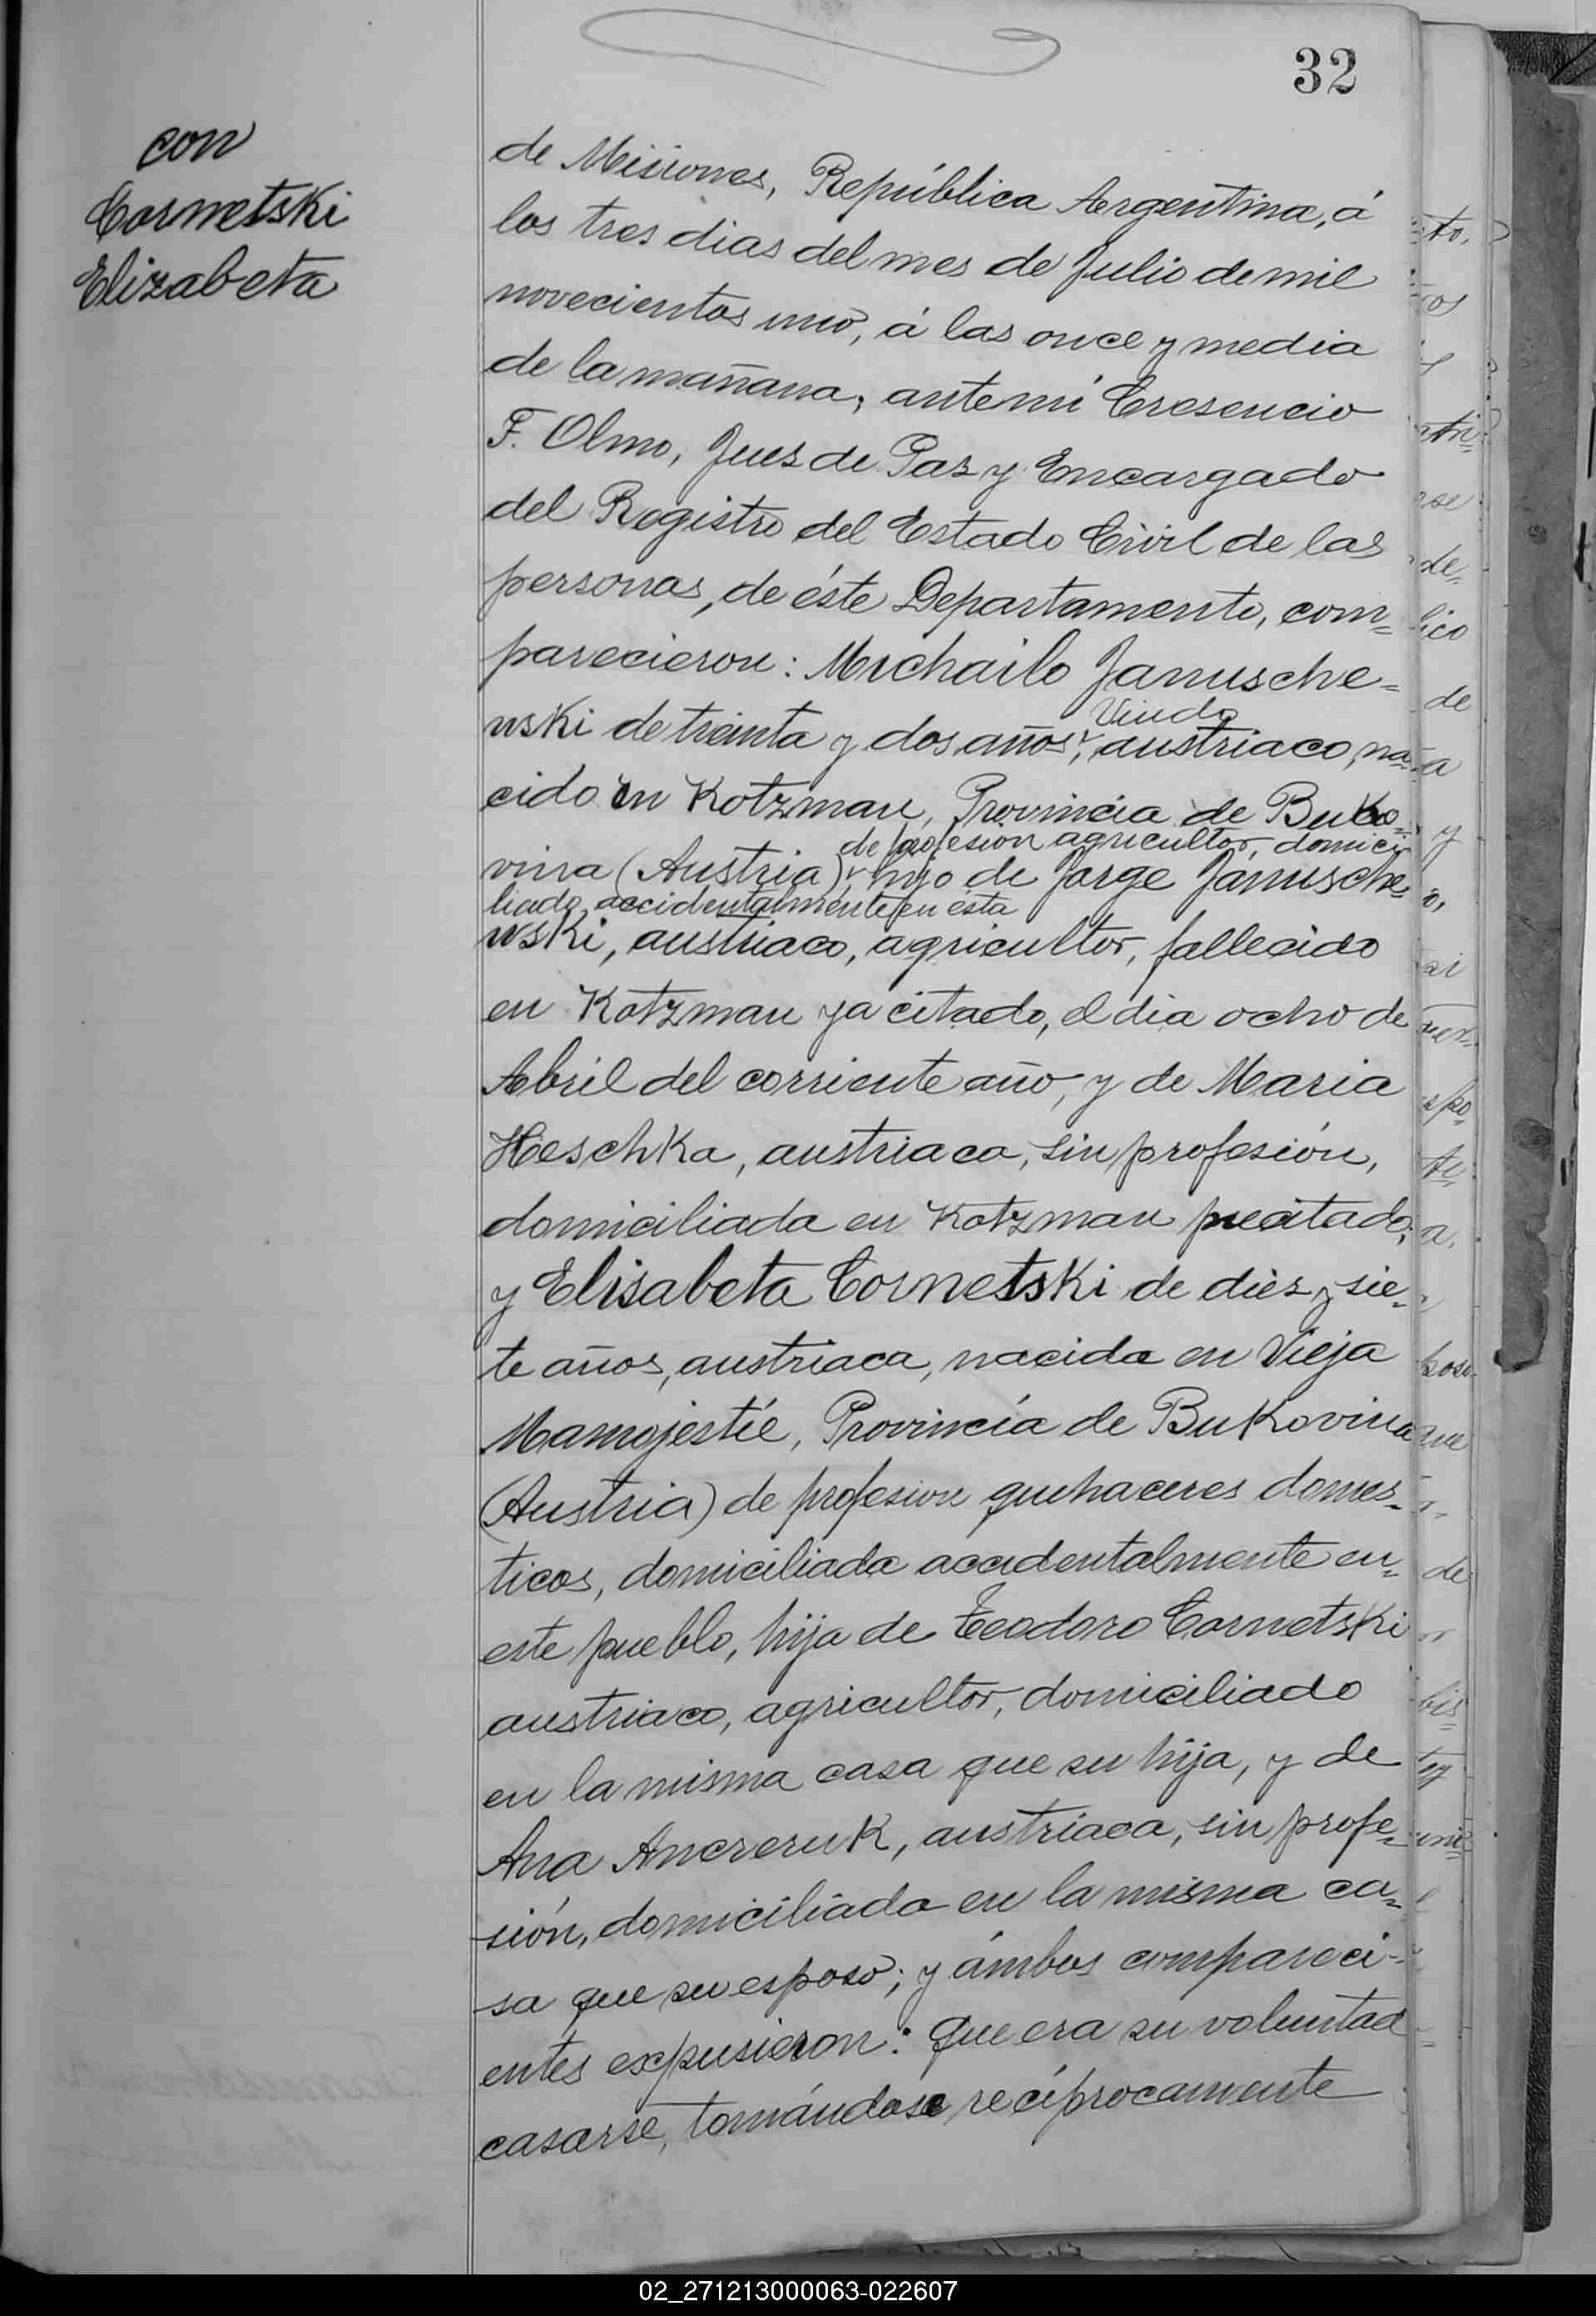 32
con
Cornetski
Elizabeta
de Misiones, República Argentina, á
los tres dias del mes de Julio de mil
novecientos uno, á las once y media
de la mañana, ante mí Cresencio
F. Olmo, Jues de Pas y Encargado
del Registro del Estado Civil de las
personas, de éste Departamento, com=
parecieron: Michailo Janusche=
wski de treinta y dos años, austriaco, na=
Viudo
cido en Kotzman, Provincia de Buko=
de profesion agricultor, domici
vina (Austria), hijo de Jorge Janusche
liado accidentalmente en ésta
wski, austriaco, agricultor, fallecido
en Kotzman ya citado, el dia ocho de
Abril del corriente año, y de Maria
Heschka, austriaca, sin profesión,
domiciliada en Kotzman precitado;
y Elisabeta Cornetski de diez y sie=
te años, austriaca, nacida en Vieja
Mamojestíe, Provincía de Bukovina
(Austria) de profesion quehaceres domes=
ticos, domiciliada accidentalmente en=
este pueblo, hija de Teodoro Cornetski
austriaco, agricultor, domiciliado
en la misma casa que su hija, y de
Ana , austriaca, sin profe=
sión, domiciliada en la misma ca=
sa que su esposo; y ámbos compareci-
entes expusieron: Que era su voluntad
casarse, tomándose recíprocamente
02_271213000063-022607